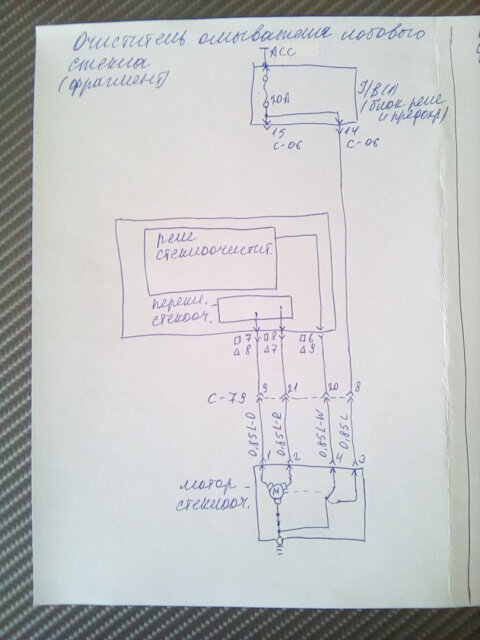 Очиститель омывателя лобового
стекла
(фрагмент)
ACC
20A
J/B(A)
(блок реле
и предохр)
15
14
C-06
C-06
реле
стеклоочистит.
перекл.
стеклооч.
□7 □8 □6
△8 △7 △9
C-79
9 21 20 8
0,85L-O 0,85L-R 0,85L-W 0,85L
1 2 4 3
мотор
стеклооч.
M